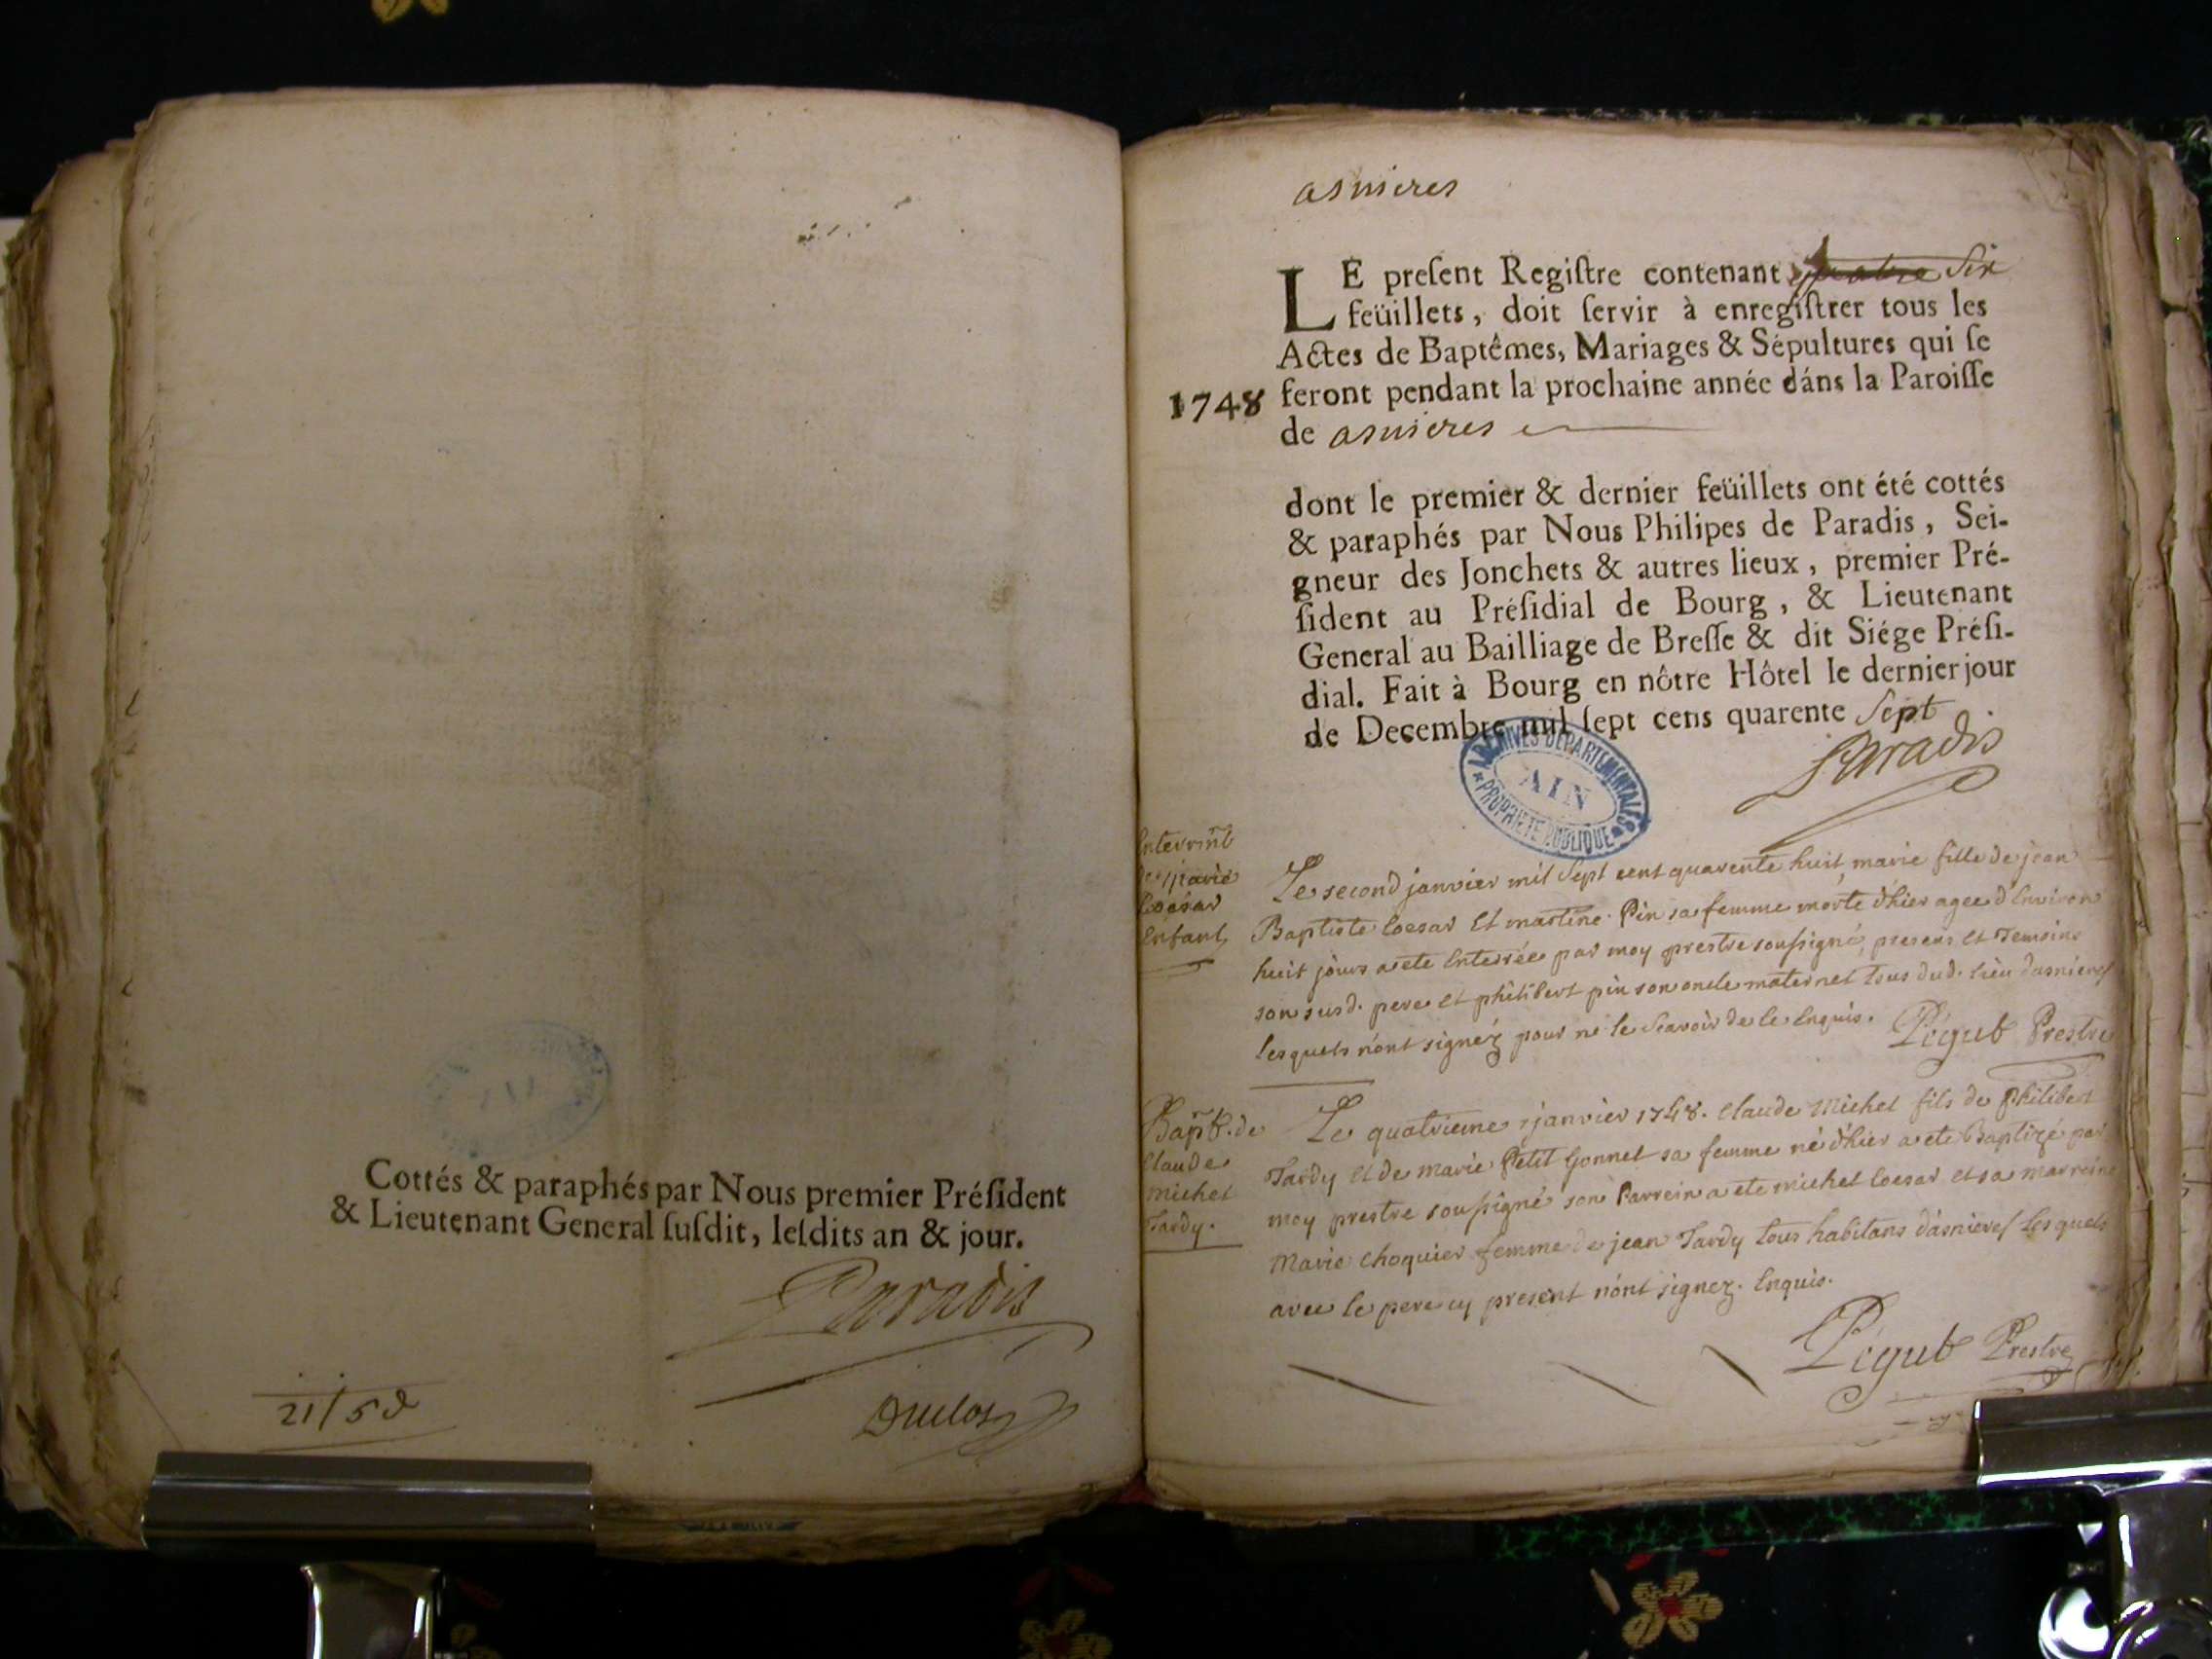 Cottés & paraphés par Nous premier Présſident
& Lieutenant General ſuſdit, leſdits an & jour.
Paradis
21/5 d
Duclos
asnieres
LE preſent Regiſtre contenant quatre Six
feüillets, doit ſervir à enregiſtrer tous les
Actes de Baptêmes, Mariages & Sépultures qui ſe
1748 feront pendant la prochaine année dáns la Paroiſſe
de asnieres
dont le premier & dernier feüillets ont été cottés
& paraphés par Nous Philipes de Paradis, Sei-
gneur des Jonchets & autres lieux, premier Pré-
ſident au Préſidial de Bourg, & Lieutenant
General au Bailliage de Breſſe & dit Siége Préſi-
dial. Fait à Bourg en nôtre Hôtel le dernier jour
de Decembre mil ſept cens quarente Sept
Paradis
ARCHIVES DEPARTEMENTALES
AIN
PROPRIETE PUBLIQUE
Enterrmt
de Marie
Coesar
Enfant
Le second janvier mil Sept cent quarente huit, marie fille de jean
Baptiste Coesar Et martine Pin sa femme morte d'hier agee d'Environ
huit jours a ete Enterrée par moy prestre soussigné, presens et Temoins
son susd. pere et philibert pin son oncle maternel tous dud. lieu dasnieres
lesquels n'ont signéz pour ne le Scavoir de le Enquis. Pégut Prestre
Bapt. de
Claude
Michel
Tardy.
Le quatrieme janvier 1748. Claude Michel fils de Philibert
Tardy et de marie Petit Gonnet sa femme né d'hier a ete Baptizé par
moy prestre soussigné son Parrein a ete michel Coesar et sa marreine
Marie Choquier femme de jean Tardy tous habitans d'asnieres lesquels
avec le pere cy present n'ont signez. Enquis.
Pégut Prestre